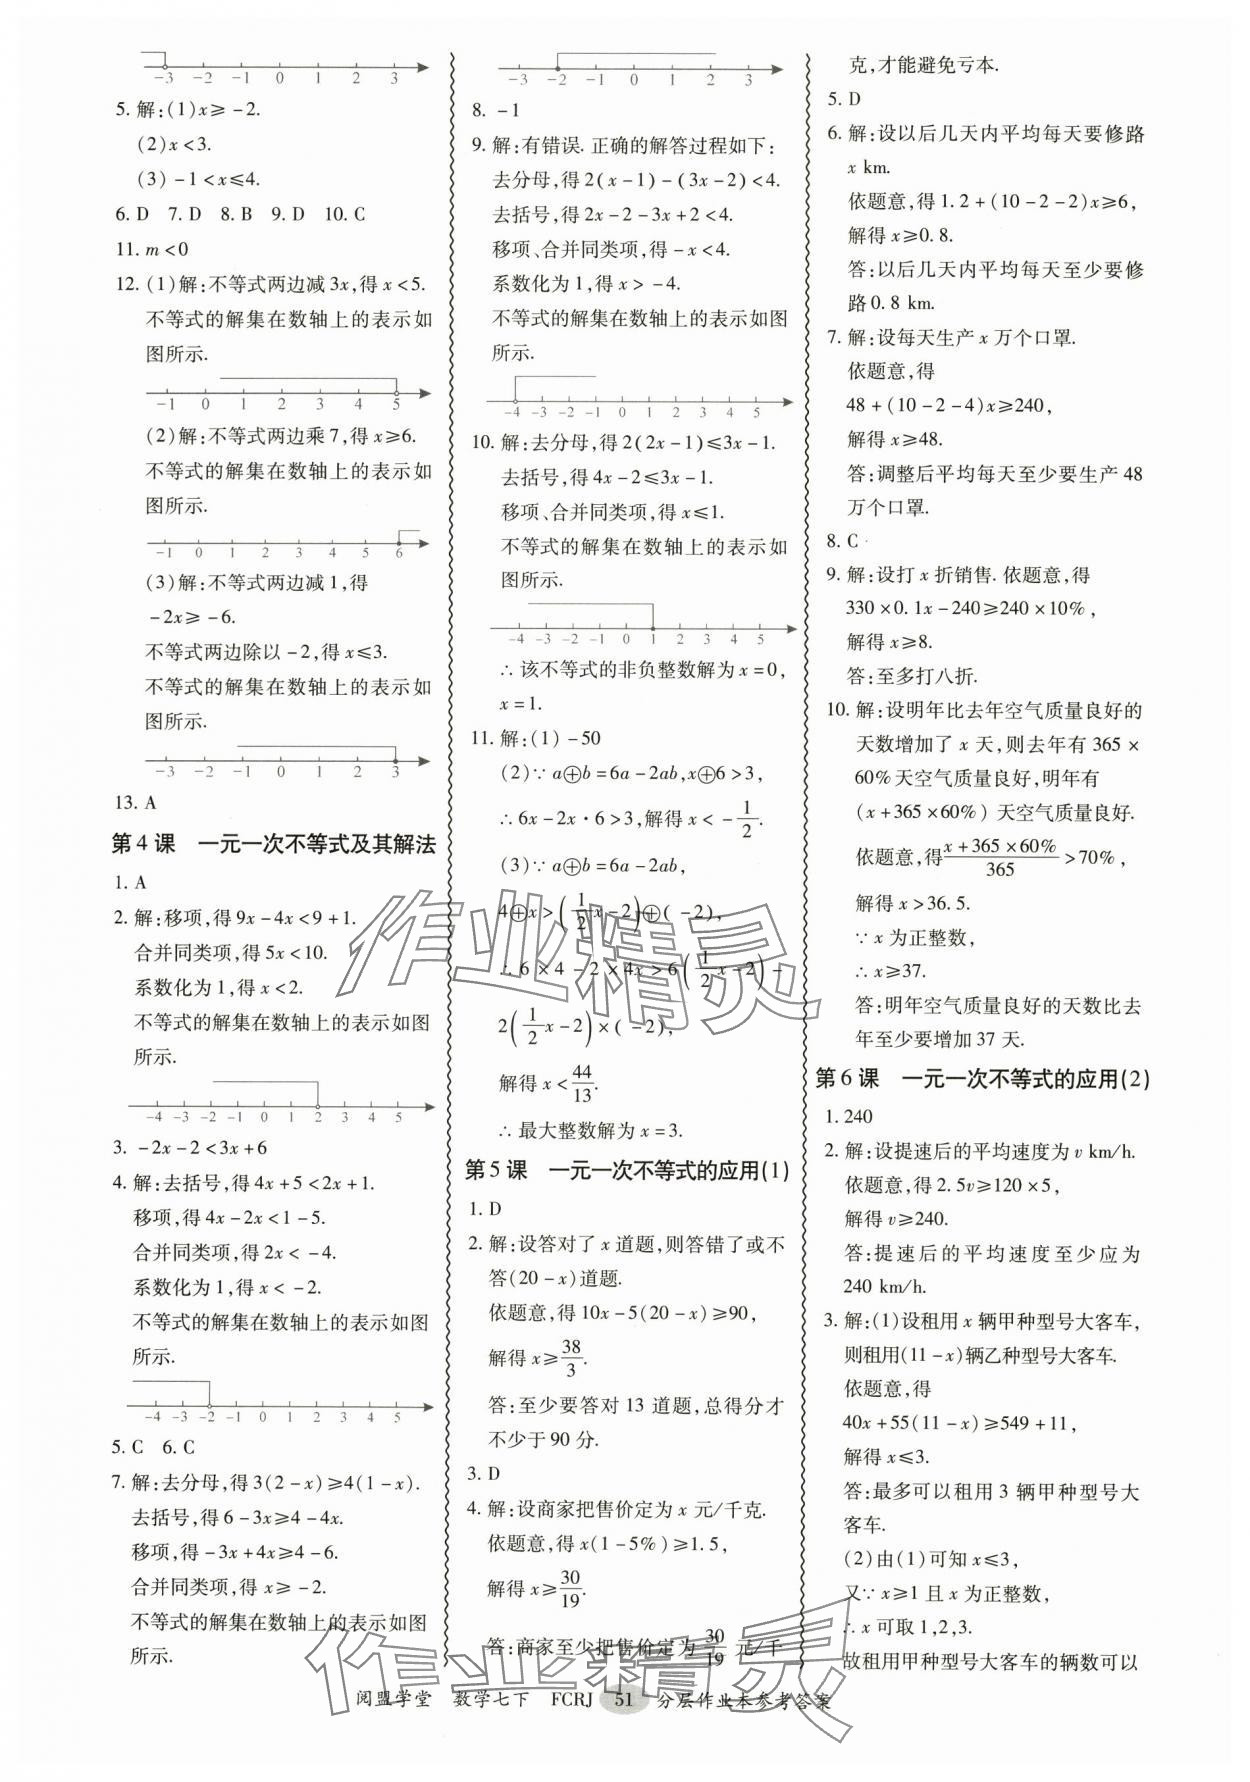 -3 -2 -1 0 1 2 3
5. 解:(1)x≥-2.
(2)x<3.
(3)-1<x≤4.
6. D 7. D 8. B 9. D 10. C
11. m<0
12. (1)解:不等式两边减3x,得x<5.
不等式的解集在数轴上的表示如
图所示.
-1 0 1 2 3 4 5
(2)解:不等式两边乘7,得x≥6.
不等式的解集在数轴上的表示如
图所示.
-1 0 1 2 3 4 5 6
(3)解:不等式两边减1,得
-2x≥-6.
不等式两边除以-2,得x≤3.
不等式的解集在数轴上的表示如
图所示.
-3 -2 -1 0 1 2 3
13. A
第4课 一元一次不等式及其解法
1. A
2. 解:移项,得9x-4x<9+1.
合并同类项,得5x<10.
系数化为1,得x<2.
不等式的解集在数轴上的表示如图
所示.
-4 -3 -2 -1 0 1 2 3 4 5
3. -2x-2<3x+6
4. 解:去括号,得4x+5<2x+1.
移项,得4x-2x<1-5.
合并同类项,得2x<-4.
系数化为1,得x<-2.
不等式的解集在数轴上的表示如图
所示.
-4 -3 -2 -1 0 1 2 3 4 5
5. C 6. C
7. 解:去分母,得3(2-x)≥4(1-x).
去括号,得6-3x≥4-4x.
移项,得-3x+4x≥4-6.
合并同类项,得x≥-2.
不等式的解集在数轴上的表示如图
所示.
-3 -2 -1 0 1 2 3
8. -1
9. 解:有错误. 正确的解答过程如下:
去分母,得2(x-1)-(3x-2)<4.
去括号,得2x-2-3x+2<4.
移项、合并同类项,得-x<4.
系数化为1,得x>-4.
不等式的解集在数轴上的表示如图
所示.
-4 -3 -2 -1 0 1 2 3 4 5
10. 解:去分母,得2(2x-1)≤3x-1.
去括号,得4x-2≤3x-1.
移项、合并同类项,得x≤1.
不等式的解集在数轴上的表示如
图所示.
-4 -3 -2 -1 0 1 2 3 4 5
∴该不等式的非负整数解为x=0,
x=1.
11. 解:(1)-50
(2)∵a⊕b=6a-2ab,x⊕6>3,
∴6x-2x·6>3,解得x<-1/2.
(3)∵a⊕b=6a-2ab,
4⊕x>(1/2x-2)⊕(-2),
∴6×4-2×4x>6(1/2x-2)-
2(1/2x-2)×(-2),
解得x<44/13.
∴最大整数解为x=3.
第5课 一元一次不等式的应用(1)
1. D
2. 解:设答对了x道题,则答错了或不
答(20-x)道题.
依题意,得10x-5(20-x)≥90,
解得x≥38/3.
答:至少要答对13道题,总得分才
不少于90分.
3. D
4. 解:设商家把售价定为x元/千克.
依题意,得x(1-5%)≥1.5,
解得x≥30/19.
答:商家至少把售价定为30/19元/千
克,才能避免亏本.
5. D
6. 解:设以后几天内平均每天要修路
x km.
依题意,得1.2+(10-2-2)x≥6,
解得x≥0.8.
答:以后几天内平均每天至少要修
路0.8 km.
7. 解:设每天生产x万个口罩.
依题意,得
48+(10-2-4)x≥240,
解得x≥48.
答:调整后平均每天至少要生产48
万个口罩.
8. C
9. 解:设打x折销售. 依题意,得
330×0.1x-240≥240×10%,
解得x≥8.
答:至多打八折.
10. 解:设明年比去年空气质量良好的
天数增加了x天,则去年有365×
60%天空气质量良好,明年有
(x+365×60%)天空气质量良好.
依题意,得(x+365×60%)/365>70%,
解得x>36.5.
∵x为正整数,
∴x≥37.
答:明年空气质量良好的天数比去
年至少要增加37天.
第6课 一元一次不等式的应用(2)
1. 240
2. 解:设提速后的平均速度为v km/h.
依题意,得2.5v≥120×5,
解得v≥240.
答:提速后的平均速度至少应为
240 km/h.
3. 解:(1)设租用x辆甲种型号大客车,
则租用(11-x)辆乙种型号大客车.
依题意,得
40x+55(11-x)≥549+11,
解得x≤3.
答:最多可以租用3辆甲种型号大
客车.
(2)由(1)可知x≤3,
又∵x≥1且x为正整数,
∴x可取1,2,3.
故租用甲种型号大客车的辆数可以
作业精灵
作业精灵
阅盟学堂 数学七下 FCRJ 51 分层作业本参考答案